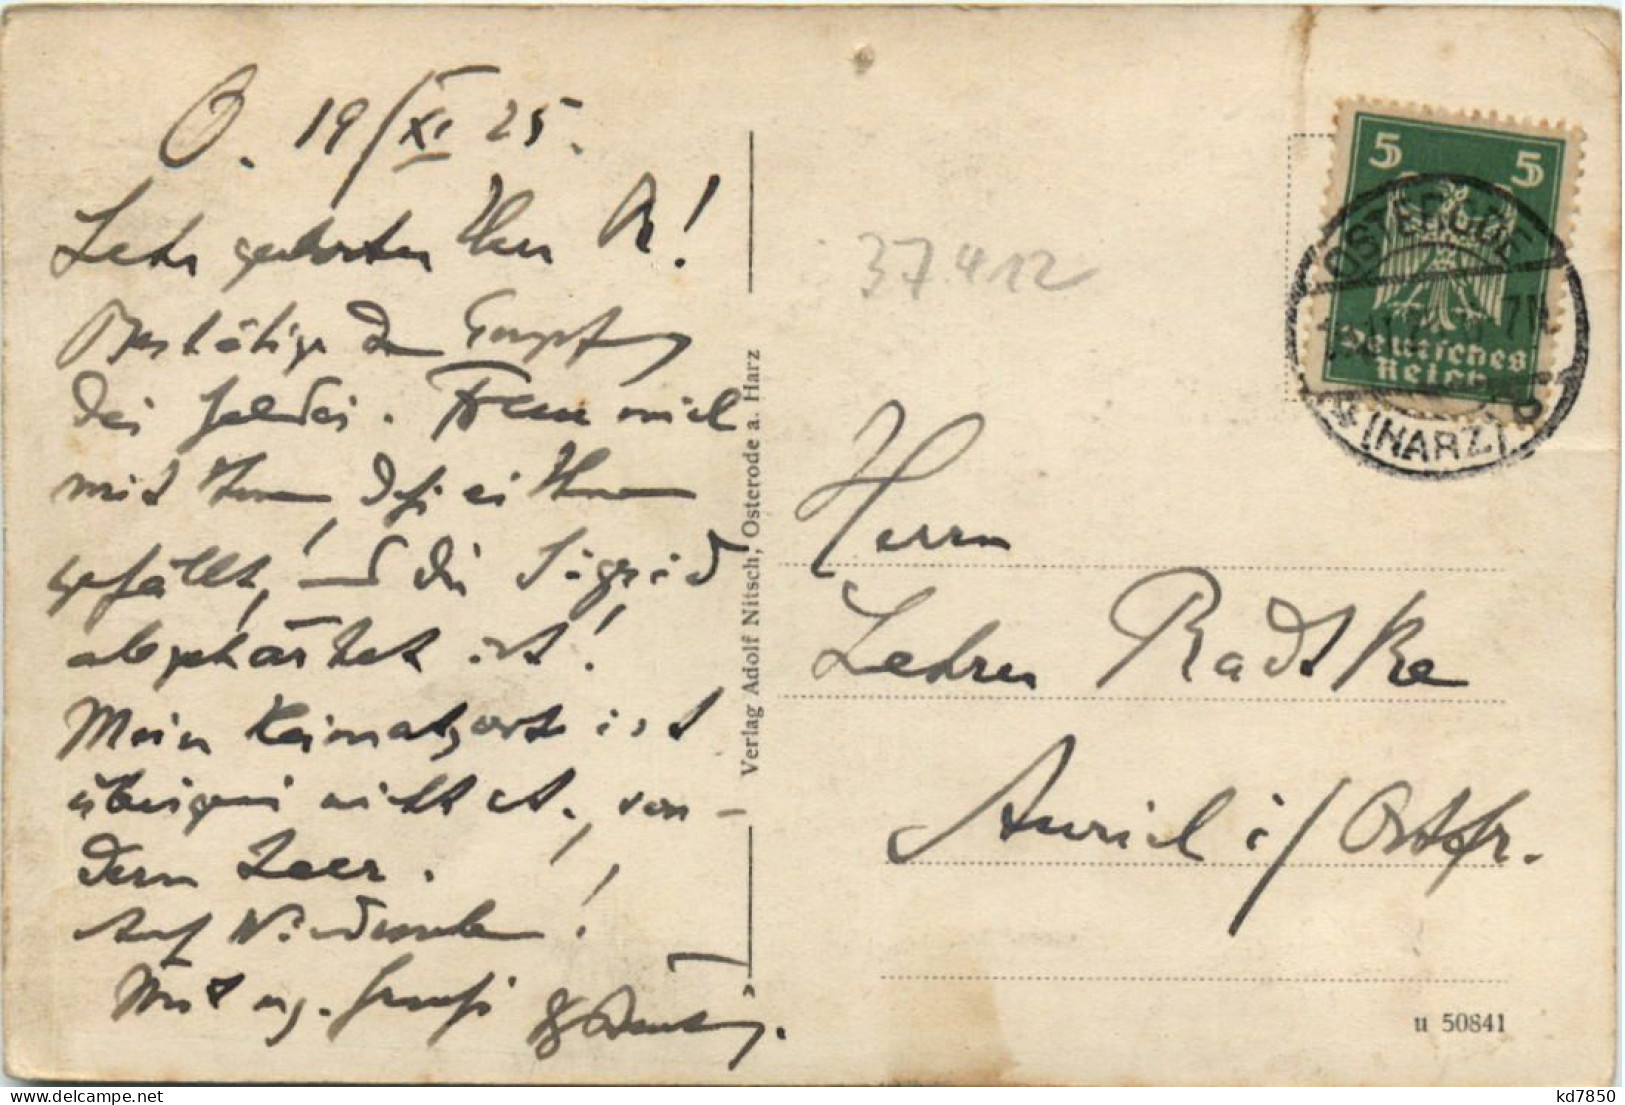 O. 19/XI 25.
Sehr geehrter Herr R!
Bestätige den Empfang
des Geldes. Freue mich
mit Ihnen, daß es Ihnen
gefällt, und die Sigrid
abgehärtet ist!
Mein Heimatsort ist
übrigens nicht A., son-
dern Leer.
Auf Wiedersehen!
Mit erg. Gruß
Verlag Adolf Nitsch, Osterode a. Harz
37412
5 5
Deutsches
Reich
OSTERODE
(HARZ)
Herrn
Lehrer Radtke
Aurich i/Ostfr.
u 50841
kd7850